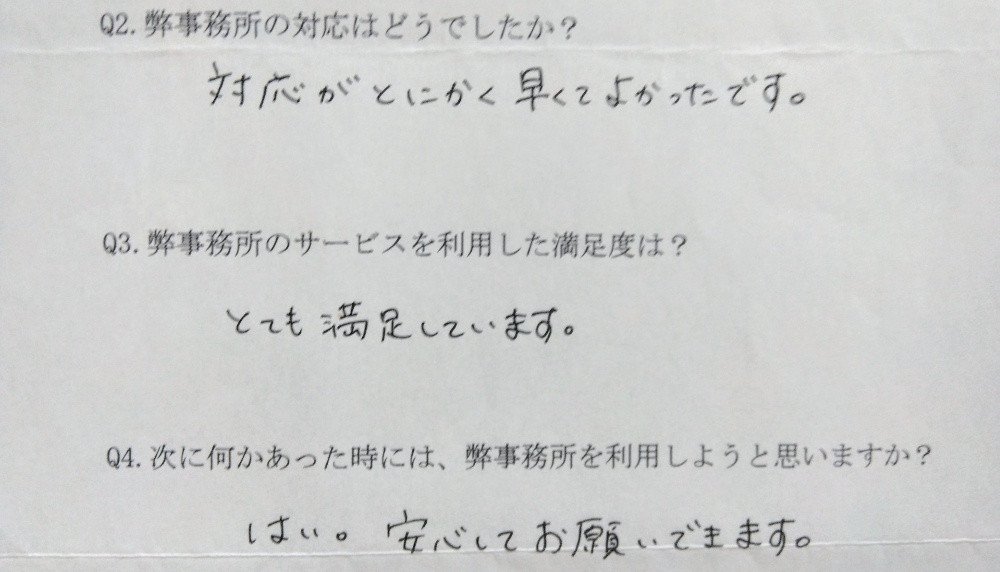 Q2.弊事務所の対応はどうでしたか？
対応がとにかく早くてよかったです。
Q3.弊事務所のサービスを利用した満足度は？
とても満足しています。
Q4.次に何かあった時には、弊事務所を利用しようと思いますか？
はい。安心してお願いできます。